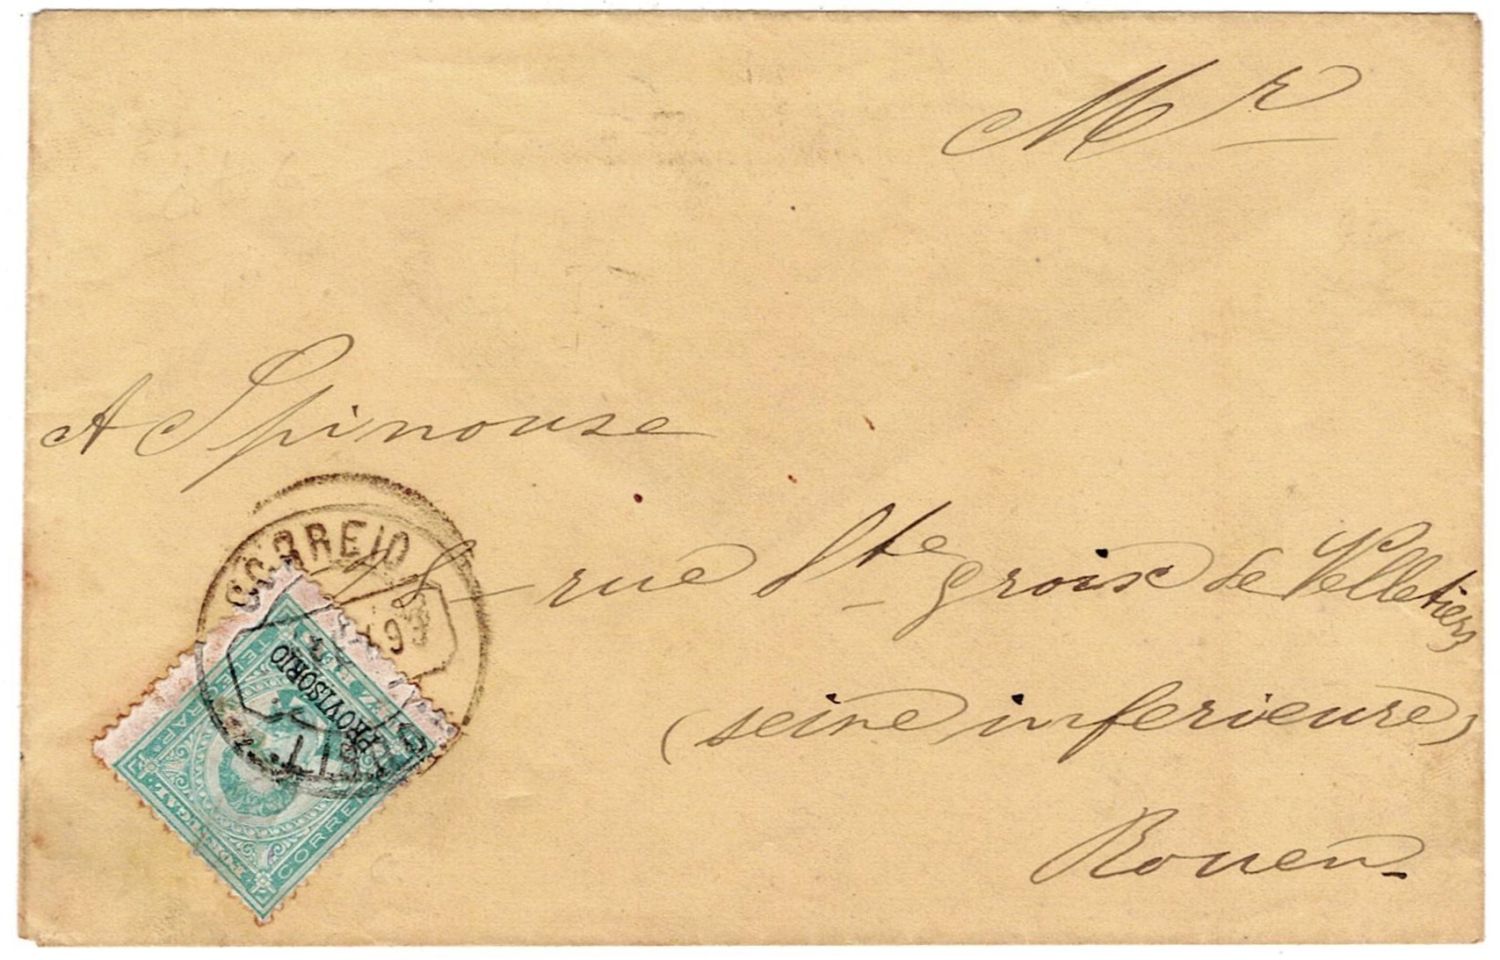 Mr
A Spinouse
28 – rue Ste groix de Pelletiers
(seine inferieure)
Rouen
CORREIO
PROVISORIO
CORREIOS